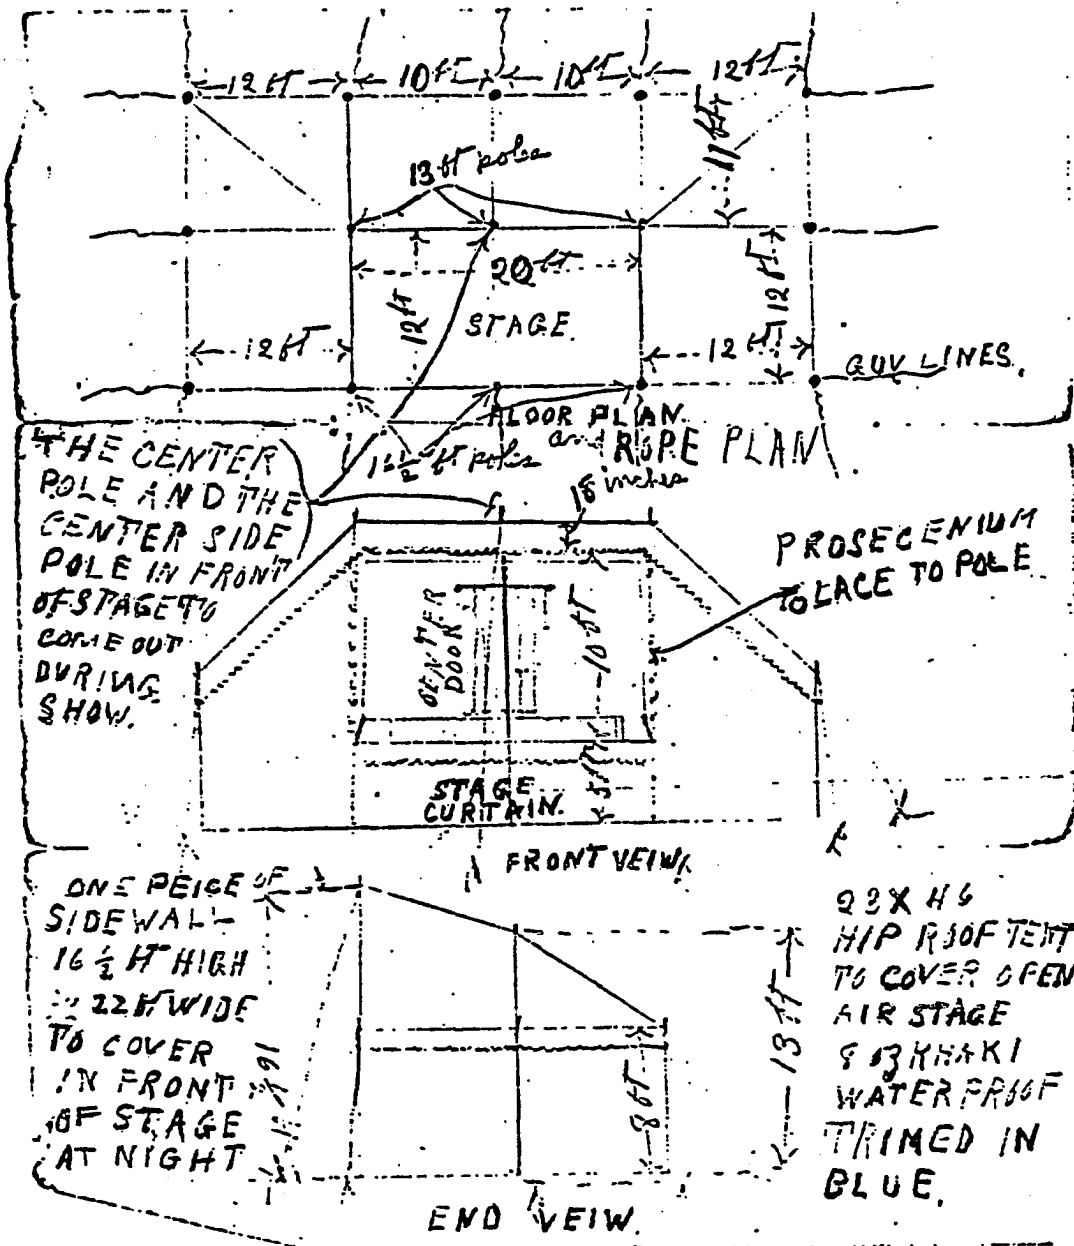 12 ft 10 ft 10 ft 12 ft
11 ft
13 ft poles
20 ft
12 ft
12 ft
STAGE.
12 ft
12 ft
GUY LINES.
FLOOR PLAN
and ROPE PLAN
16 1/2 ft poles
18 inches
THE CENTER
POLE AND THE
CENTER SIDE
POLE IN FRONT
OF STAGE TO
COME OUT
DURING
SHOW.
PROSECENIUM
TO LACE TO POLE
CENTER
DOOR
10 ft
STAGE
CURTAIN.
FRONT VEIW.
ONE PEICE OF
SIDEWALL
16 1/2 ft HIGH
22 ft WIDE
TO COVER
IN FRONT
OF STAGE
AT NIGHT
8 ft
13 ft
23 X 46
HIP ROOF TENT
TO COVER OPEN
AIR STAGE
8 oz KHAKI
WATER PROOF
TRIMED IN
BLUE.
END VEIW.